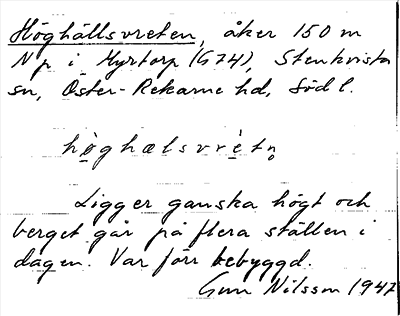 Höghällsvreten, åker 150 m
N p i Myrtorp (G74), Stenkvista
sn, Öster-Rekarne hd, Södl.
hö̀ghælsvrètn̥
Ligger ganska högt och
berget går på flera ställen i
dagen. Var förr bebyggd.
Gun Nilsson 1947